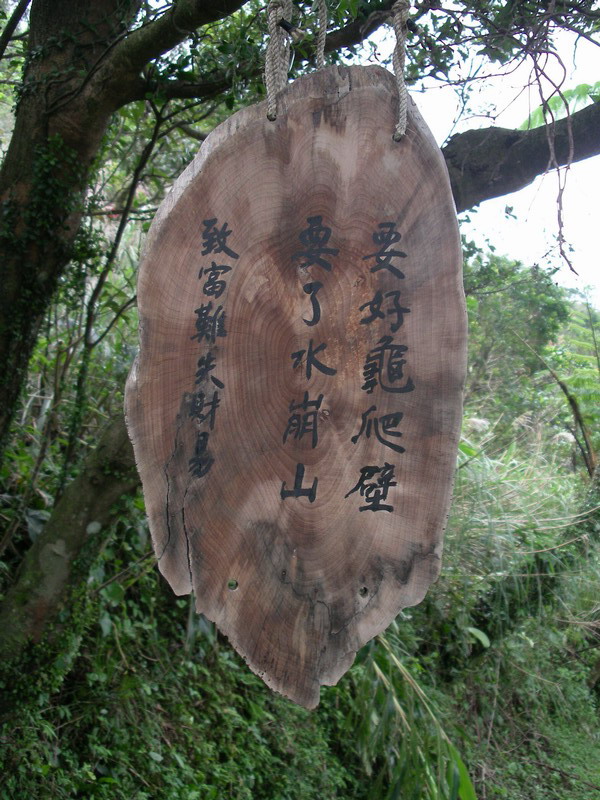 要好龜爬壁
要了水崩山
致富難失財易